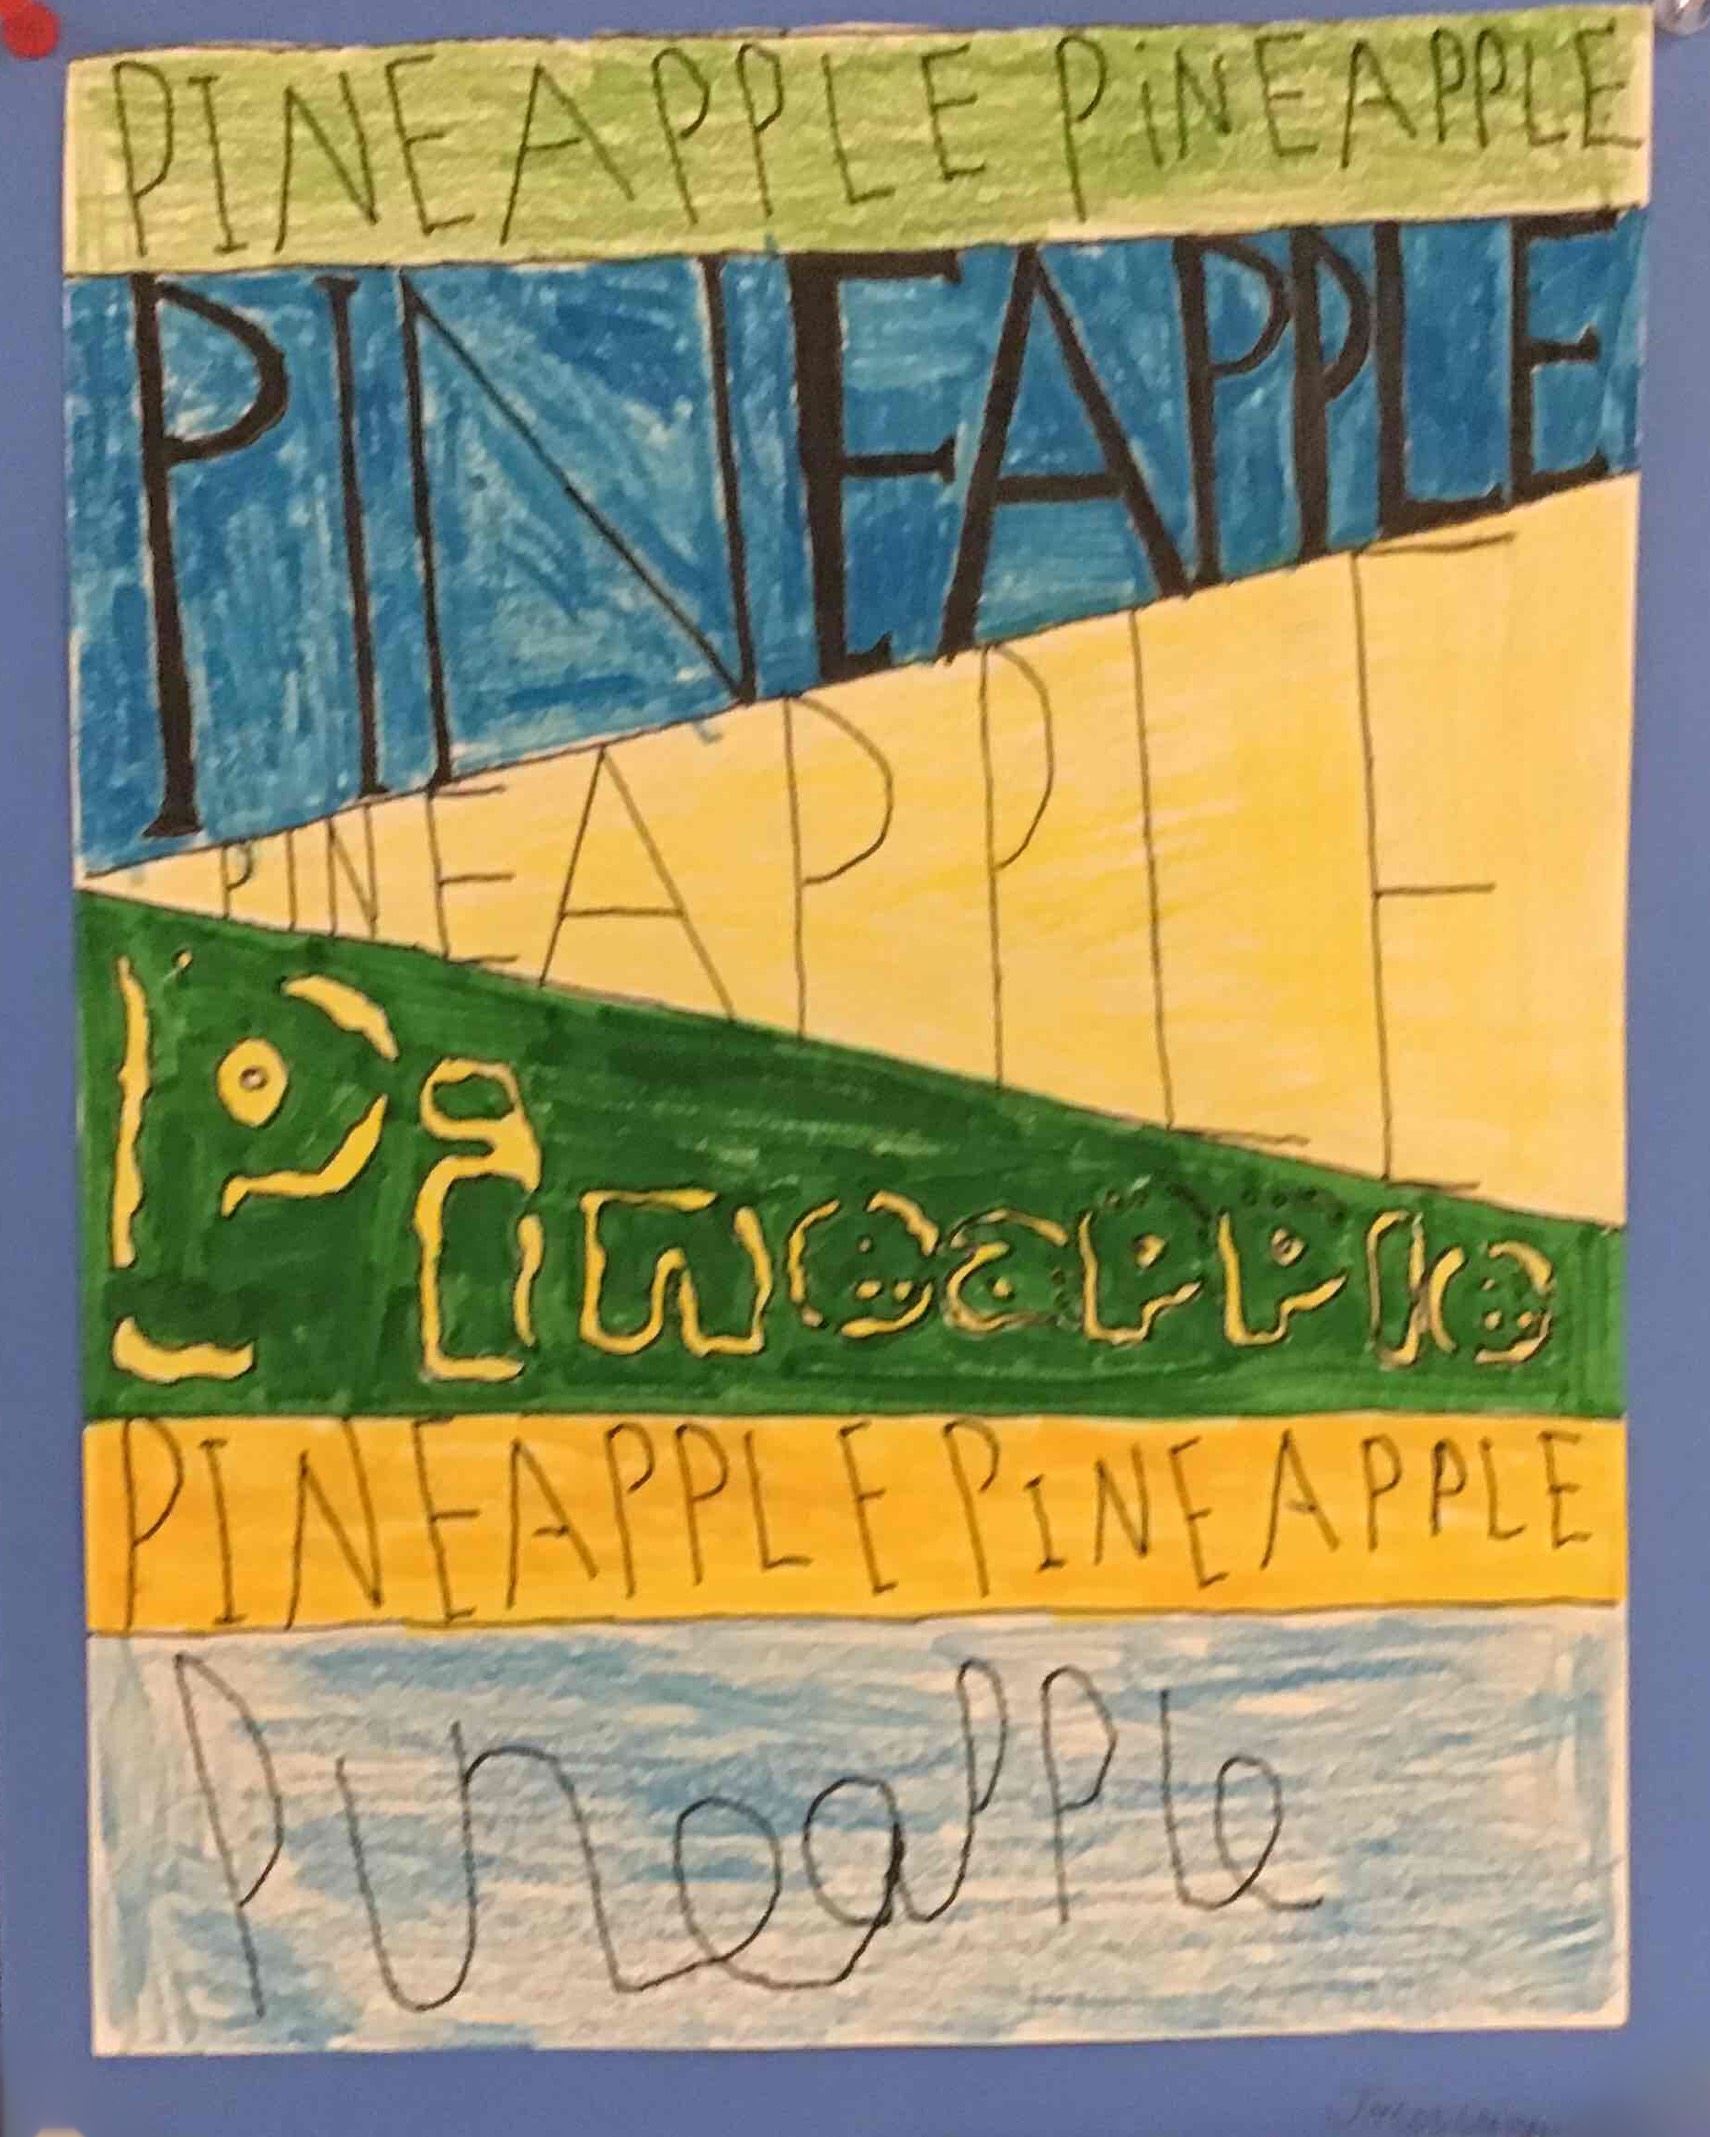 PINEAPPLE PiNEAPPLE
PINEAPPLE
PINEAPPLE
Pineapple
PINEAPPLE PINEAPPLE
Pineapple